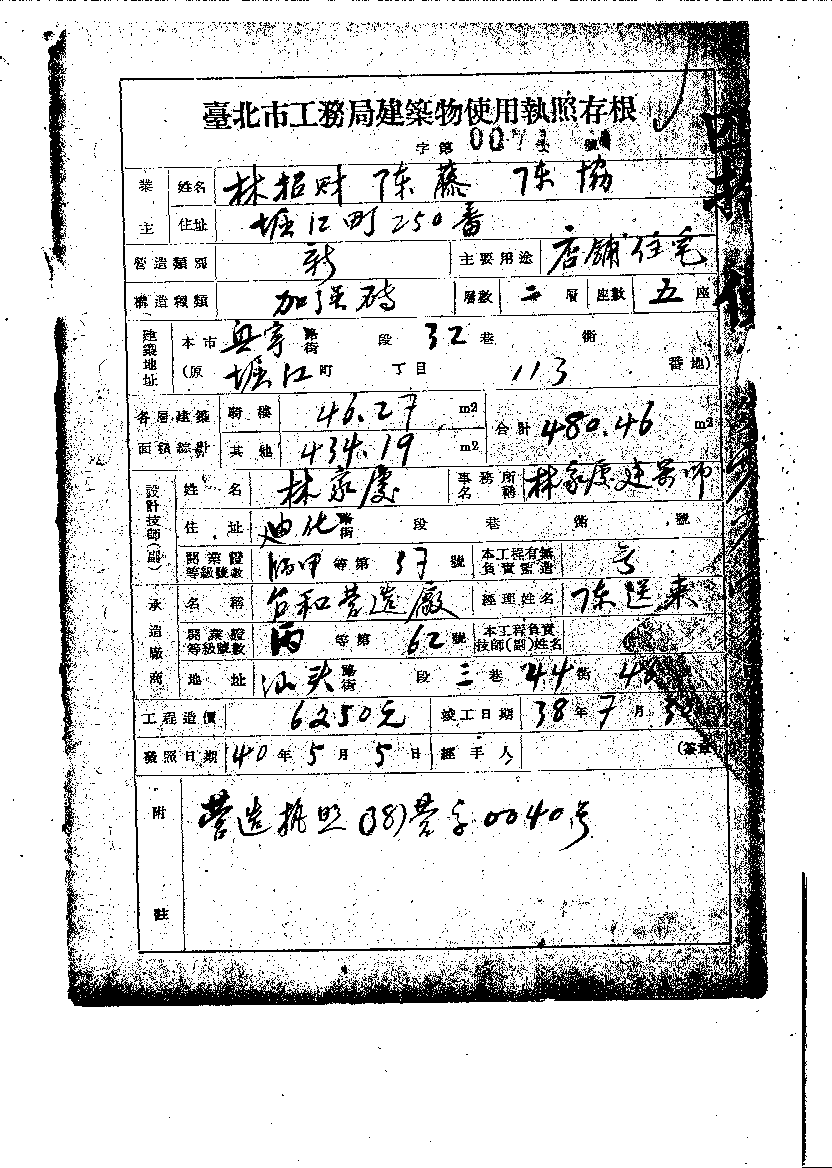 臺北市工務局建築物使用執照存根
字第 00 號
業主 姓名 林招財 陈藤 陈協
住址 堀江町250番
營造類別 新 主要用途 店舖住宅
構造種類 加强磚 層數 二 層 座數 五 座
建築地址 本市 路街 段 32 巷 衖
(原 堀江 町 丁目 113 番地)
各層建築面積綜計 騎樓 46.27 m2 合計 480.46 m2
其他 434.19 m2
設計技師(副) 姓名 林家慶 事務所名稱 林家慶建築師
住址 迪化 路街 段 巷 衖 號
開業證等級號數 等第 37 號 本工程有無負責監造
承造廠商 名稱 台和营造廠 經理姓名 陈送来
開業證等級號數 丙 等第 62 號 本工程負責技師(副)姓名
地址 汕头 路街 段 三 巷 44 衖
工程造價 6250元 竣工日期 38 年 7 月
發照日期 40 年 5 月 5 日 經手人 (簽章)
附註 营造执照(38)营字0040号